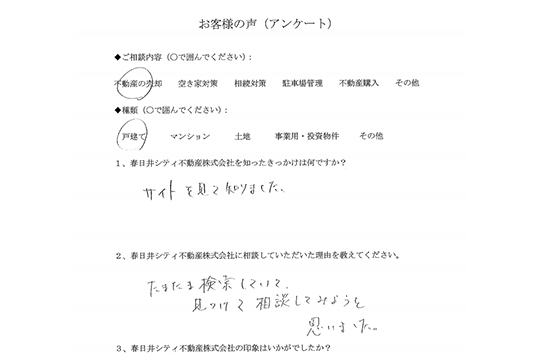 お客様の声（アンケート）
◆ご相談内容（〇で囲んでください）：
不動産の売却　空き家対策　相続対策　駐車場管理　不動産購入　その他
◆種類（〇で囲んでください）：
戸建て　マンション　土地　事業用・投資物件　その他
1、春日井シティ不動産株式会社を知ったきっかけは何ですか？
サイトを見て知りました。
2、春日井シティ不動産株式会社に相談していただいた理由を教えてください。
たまたま検索していて、
見つけて相談してみようと
思いました。
3、春日井シティ不動産株式会社の印象はいかがでしたか？